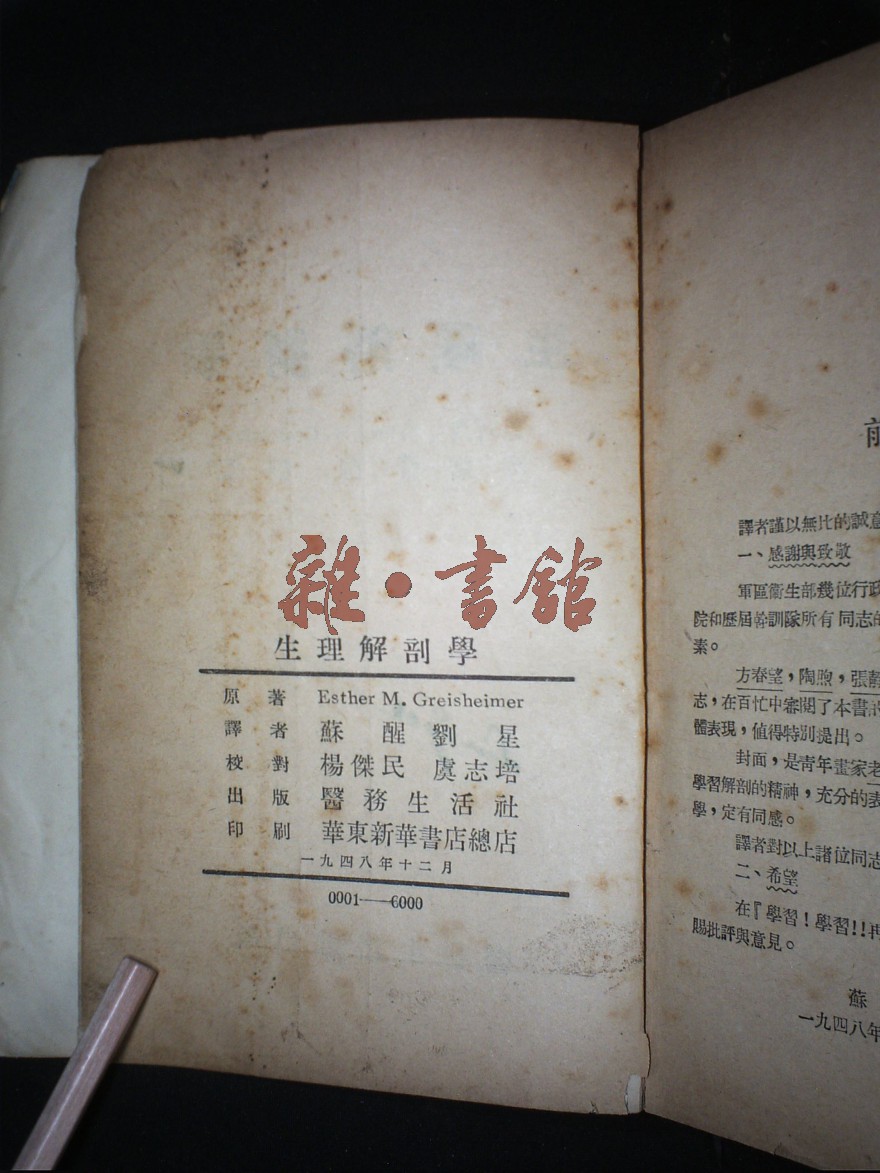 雜·書館
生理解剖學
原著 Esther M. Greisheimer
譯者 蘇醒 劉星
校對 楊傑民 虞志培
出版 醫務生活社
印刷 華東新華書店總店
一九四八年十二月
0001——6000
前
譯者謹以無比的誠意
一、感謝與致敬
軍區衞生部幾位行政
院和歷屆幹訓隊所有同志的
素。
方春望，陶煦，張
志，在百忙中審閱了本書
體表現，值得特別提出。
封面，是青年畫家老
學習解剖的精神，充分的表
學，定有同感。
譯者對以上諸位同志
二、希望
在『學習！學習!!再
賜批評與意見。
蘇
一九四八年